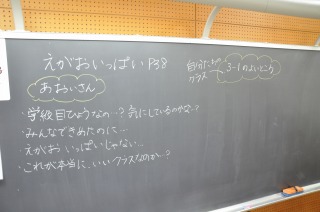 えがおいっぱい P38
自分たちの
クラス
3-1のよいところ
あおいさん
・学級目ひょうなの…? 気にしているのかな…?
・みんなできめたのに…
・えがお いっぱいじゃない…
・これが本当に、いいクラスなのか…?